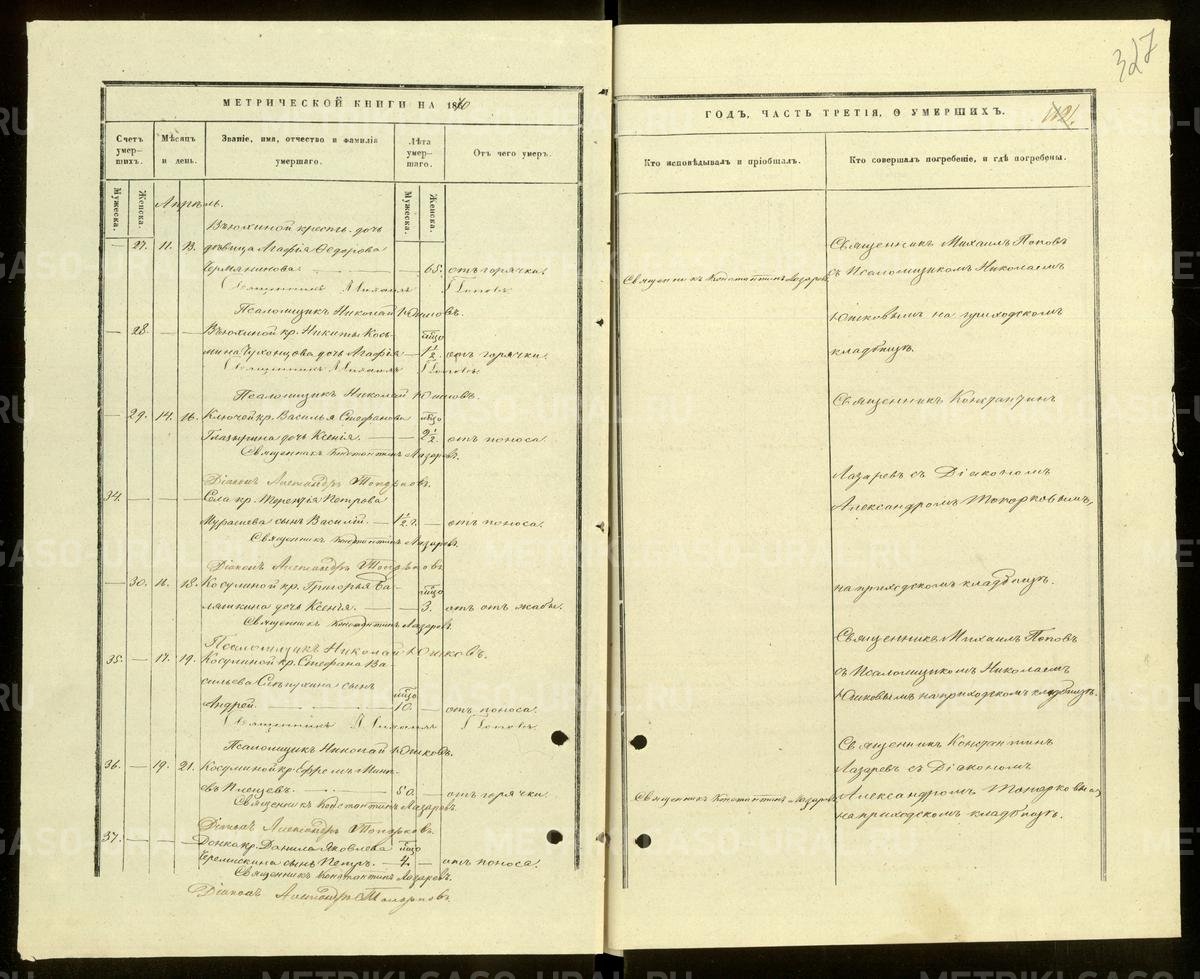 327
МЕТРИЧЕСКОЙ КНИГИ НА 1870
ГОДЪ, ЧАСТЬ ТРЕТІЯ, О УМЕРШИХЪ.
Счетъ умер—шихъ.
Мѣсяцъ и день.
Званіе, имя, отчество и фамилія умершаго.
Лѣта умер—шаго.
Отъ чего умеръ.
Мужеска.
Женска.
Мужеска.
Женска.
Апрѣль.
Вьюхиной кресть. дочь
— 27. 11. 13. дѣвица Агафія Ѳедорова
— 65. отъ горячки.
Священникъ Михаилъ Поповъ
Псаломщикъ Николай Юшковъ.
— 28. — — Вьюхиной кр. Никиты Кось-
мина Чухонцова дочь Агафія — 1½. отъ горячки.
Священникъ Михаилъ Поповъ
Псаломщикъ Николай Юшковъ.
— 29. 14. 16. Ключей кр. Василья Стефанова
Глазырина дочь Ксенія. — — 2½. отъ поноса.
Священникъ Константинъ Лазаревъ.
Діаконъ Александръ Топорковъ.
34. — — — Села кр. Терентія Петрова
сынъ Василій. — 1½ г. — отъ поноса.
Священникъ Константинъ Лазаревъ.
Діаконъ Александръ Топорковъ
— 30. 16. 18. Косулиной кр. Григорья Ба-
ляшкина дочь Ксенія. — — 3. отъ отъ жабы.
Священникъ Константинъ Лазаревъ.
Псаломщикъ Николай Юшковъ.
35. — 17. 19. Косулиной кр. Стефана Ва-
сильева Слѣпухина сынъ
Андрей. 10. — отъ поноса.
Священникъ Михаилъ Поповъ
Псаломщикъ Николай Юшковъ.
36. — 19. 21. Косулиной кр. Ефремъ
въ Плещевъ. — 50. — отъ горячки.
Священникъ Константинъ Лазаревъ.
Діаконъ Александръ Топорковъ.
37. — — — кр. Данила Яковлева
Черемискина сынъ Петръ. — 4. — отъ поноса.
Священникъ Константинъ Лазаревъ.
Діаконъ Александръ Топорковъ
Кто исповѣдывалъ и пріобщалъ.
Кто совершалъ погребеніе, и гдѣ погребены.
Священникъ Константинъ Лазаревъ
Священникъ Михаилъ Поповъ
съ Псаломщикомъ Николаемъ
Юшковымъ на приходскомъ
кладбищѣ.
Священникъ Константинъ
Лазаревъ съ Діакономъ
Александромъ Топорковымъ,
на приходскомъ кладбищѣ.
Священникъ Михаилъ Поповъ
съ Псаломщикомъ Николаемъ
Юшковымъ на приходскомъ кладбищѣ.
Священникъ Константинъ
Лазаревъ съ Діакономъ
Священникъ Константинъ Лазаревъ
Александромъ Топорковымъ
на приходскомъ кладбищѣ.
METRIKI.GASO-URAL.RU